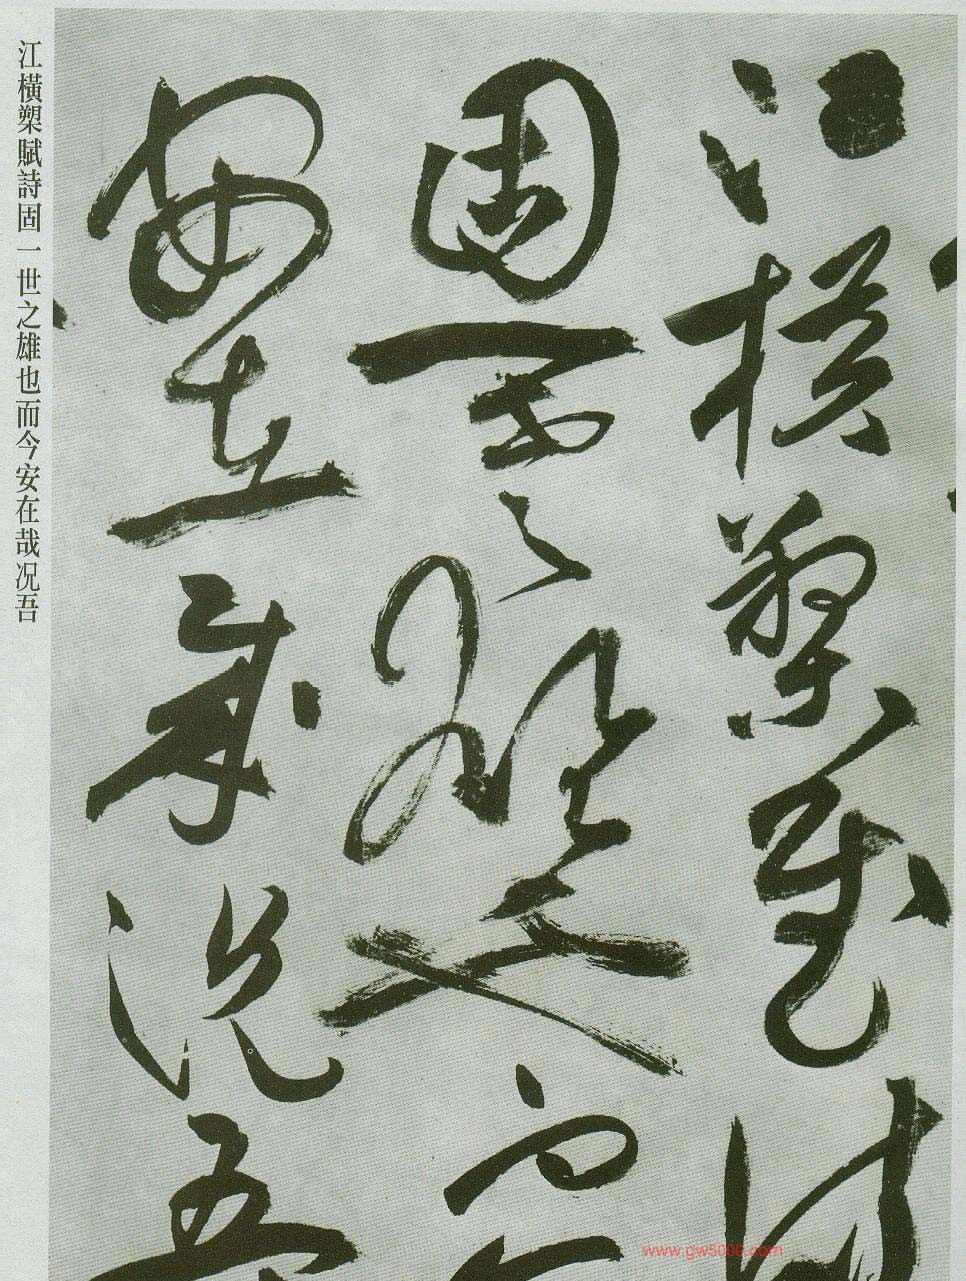 江橫槊賦詩
固一世之雄也而今
安在哉況吾
江橫槊賦詩固一世之雄也而今安在哉況吾
www.gw5000.com